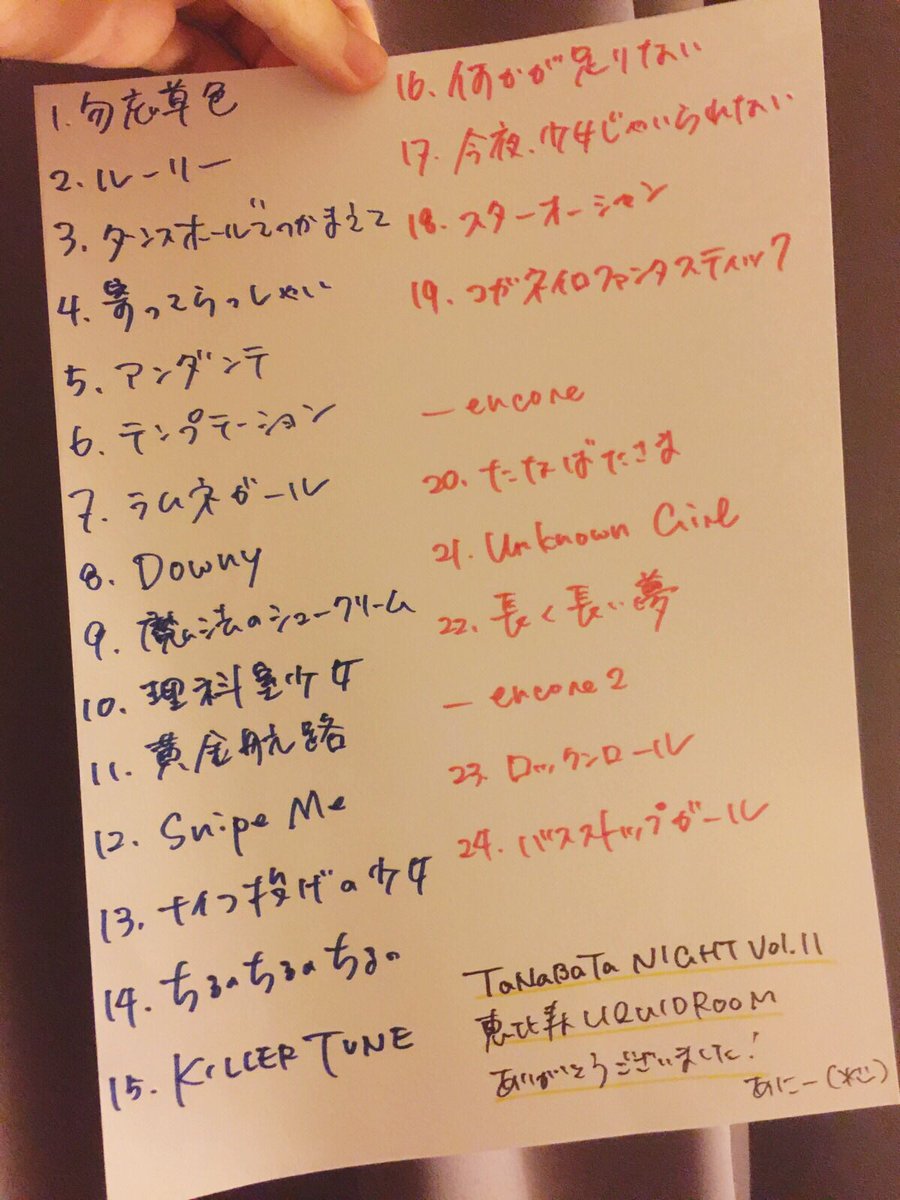 1. 勿忘草色
2. ルーリー
3. ダンスホールでつかまえて
4. 寄ってらっしゃい
5. アンダンテ
6. テンプテーション
7. ラムネガール
8. Downy
9. 魔法のシュークリーム
10. 理科室少女
11. 黄金航路
12. Snipe Me
13. ナイフ投げの少女
14. ちるのちるのちるの
15. KILLER TUNE
16. 何かが足りない
17. 今夜、少女じゃいられない
18. スターオーシャン
19. コガネイロファンタスティック
— encore
20. たなばたさま
21. Unknown Girl
22. 長く長い夢
— encore 2
23. ロックンロール
24. バスストップガール
TaNaBaTa NIGHT Vol.11
恵比寿 LIQUIDROOM
ありがとうございました!
あにー